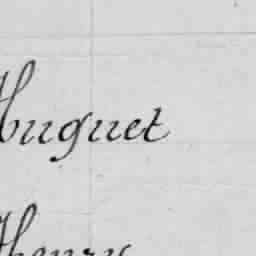 Huguet
Thenry